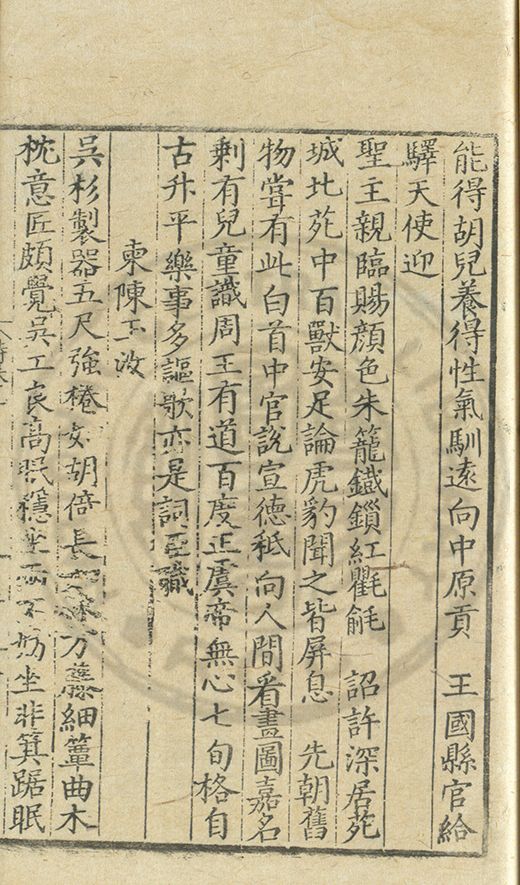 能得胡兒養得性氣馴遠向中原貢　王國縣官給
驛天使迎
聖主親臨賜顏色朱籠鐵鎖紅氍毹　詔許深居苑
城北苑中百獸安足論虎豹聞之皆屏息　先朝舊
物嘗有此白首中官說宣德秪向人間看畫圖嘉名
剩有兒童識周王有道百度正虞帝無心七旬格自
古升平樂事多謳歌亦是詞臣職
柬陳玉汝
吳杉製器五尺強棬如胡倍長藤細簟曲木
枕意匠頗覺吳工良高眠穩坐兩不妨坐非箕踞眠